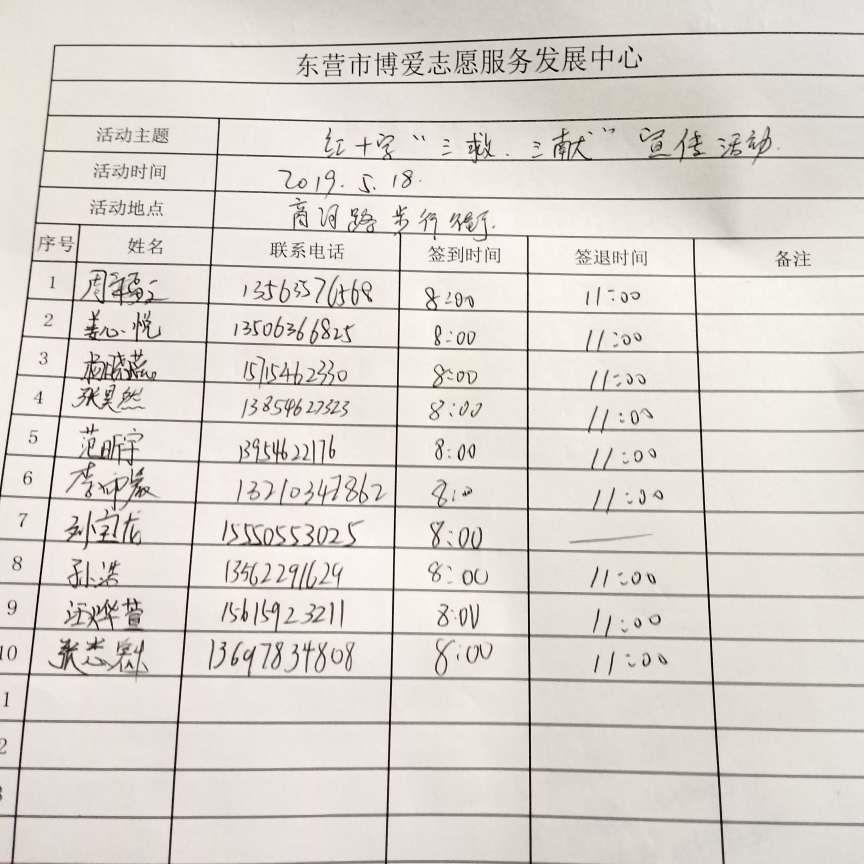 东营市博爱志愿服务发展中心
活动主题 红十字“三救、三献”宣传活动.
活动时间 2019.5.18.
活动地点 商河路步行街.
序号 姓名 联系电话 签到时间 签退时间 备注
1 13563576568 8:00 11:00
2 姜心悦 13506366825 8:00 11:00
3 杨晓燕 15715462330 8:00 11:00
4 张昊然 13854627323 8:00 11:00
5 范昕宇 13954622176 8:00 11:00
6 8:00 11:00
7 刘宝龙 15550553025 8:00 —
8 孙浩 13562291629 8:00 11:00
9 汪烨萱 15615923211 8:00 11:00
10 13697834808 8:00 11:00
1
2
3